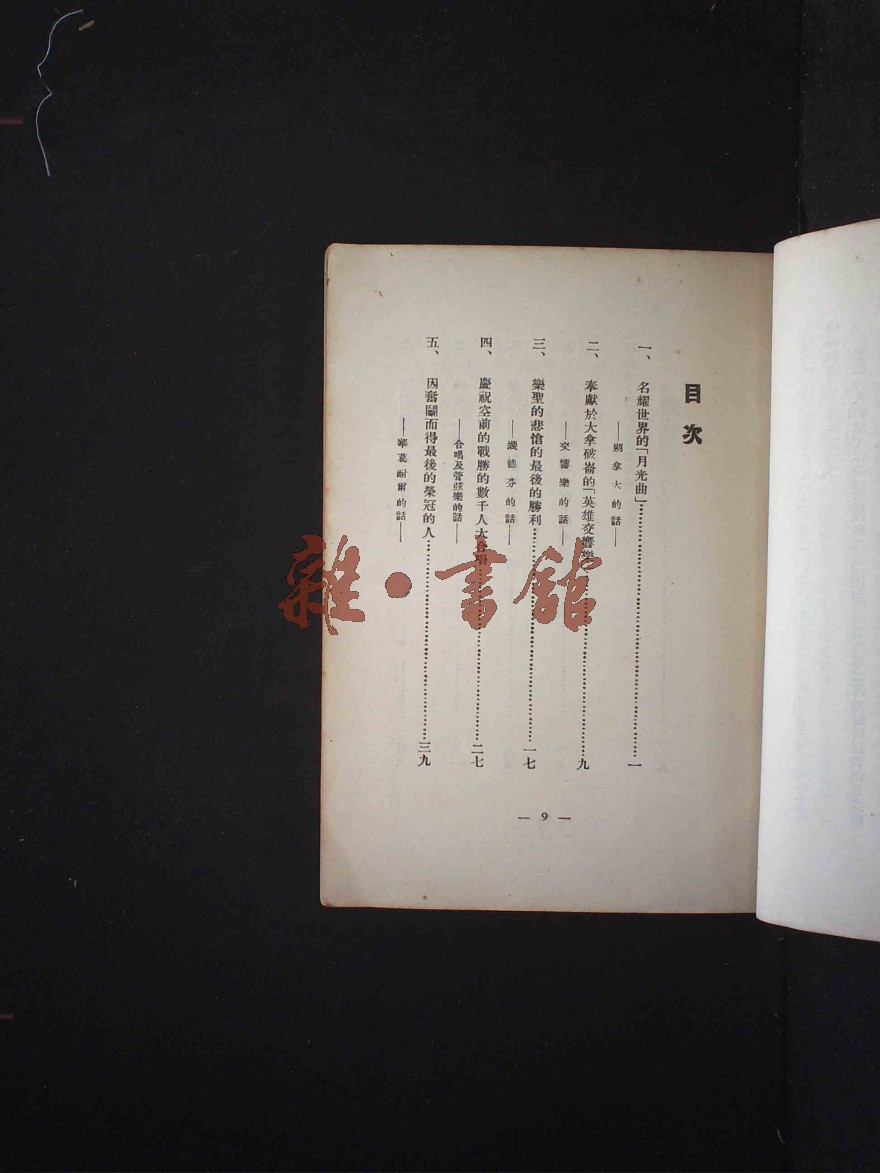 目次
一、名耀世界的「月光曲」……一
——朔拿大的話——
二、奉獻於大拿破崙的「英雄交響樂」……九
——交響樂的話——
三、樂聖的悲愴的最後的勝利……一七
——裴德芬的話——
四、慶祝空前的戰勝的數千人大合唱……二七
——合唱及管弦樂的話——
五、因奮鬭而得最後的榮冠的人……三九
——華葛耐爾的話——
— 9 —
雜·書館